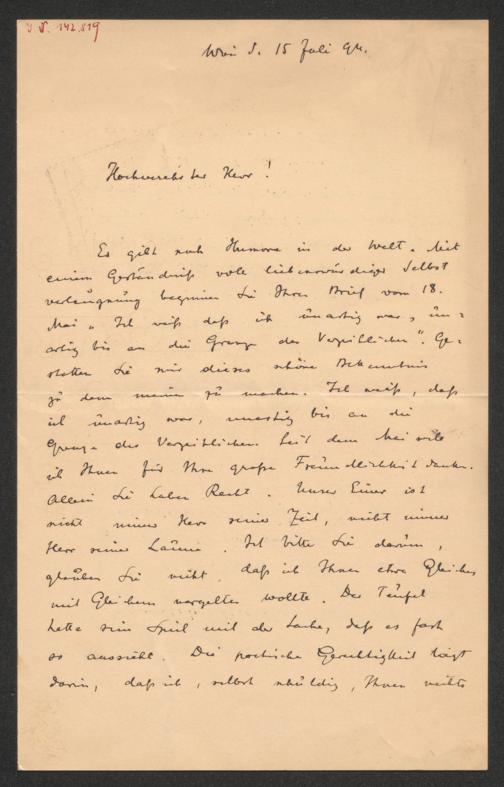 I. N. 142.819
Wien d. 15 Juli 94.
Hochverehrter Herr!
Es gibt noch Humore in der Welt. Mit
einem Geständniß voll liebenswürdiger Selbst
verleugnung beginnen Sie Ihren Brief vom 18.
Mai „Ich weiß daß ich unartig war, un-
artig bis an die Grenze des Verzeihlichen". Ge-
statten Sie mir dieses schöne Bekenntnis
zu dem meinen zu machen. Ich weiß, daß
ich unartig war, unartig bis an die
Grenze des Verzeihlichen. Seit dem Mai will
ich Ihnen für Ihre große Freundlichkeit danken.
Allein Sie haben Recht. Unser Einer ist
nicht immer Herr seiner Zeit, nicht immer
Herr seiner Laune. Ich bitte Sie darum,
glauben Sie nicht, daß ich Ihnen etwa Gleiches
mit Gleichem vergelten wollte. Der Teufel
hatte sein Spiel mit der Sache, daß es fast
so aussieht. Die poetische Gerechtigkeit liegt
darin, daß ich, selbst schuldig, Ihnen nichts